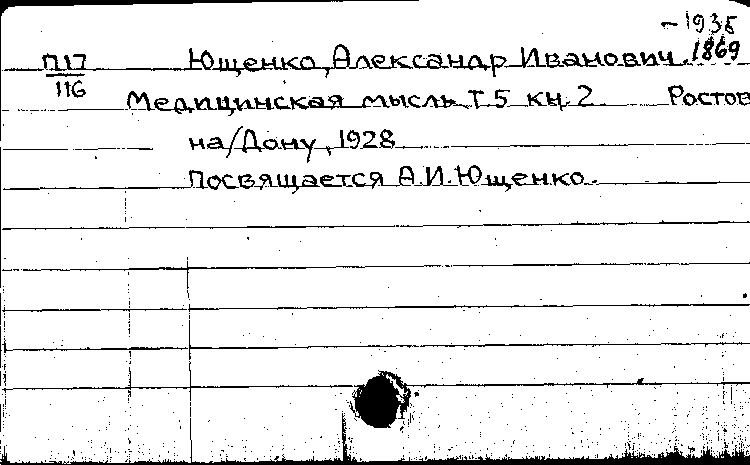 – 1935
П17 Ющенко, Александр Иванович. 1869
116 Медицинская мысль. Т.5 кн.2. Ростов
на/Дону, 1928
Посвящается А.И.Ющенко.